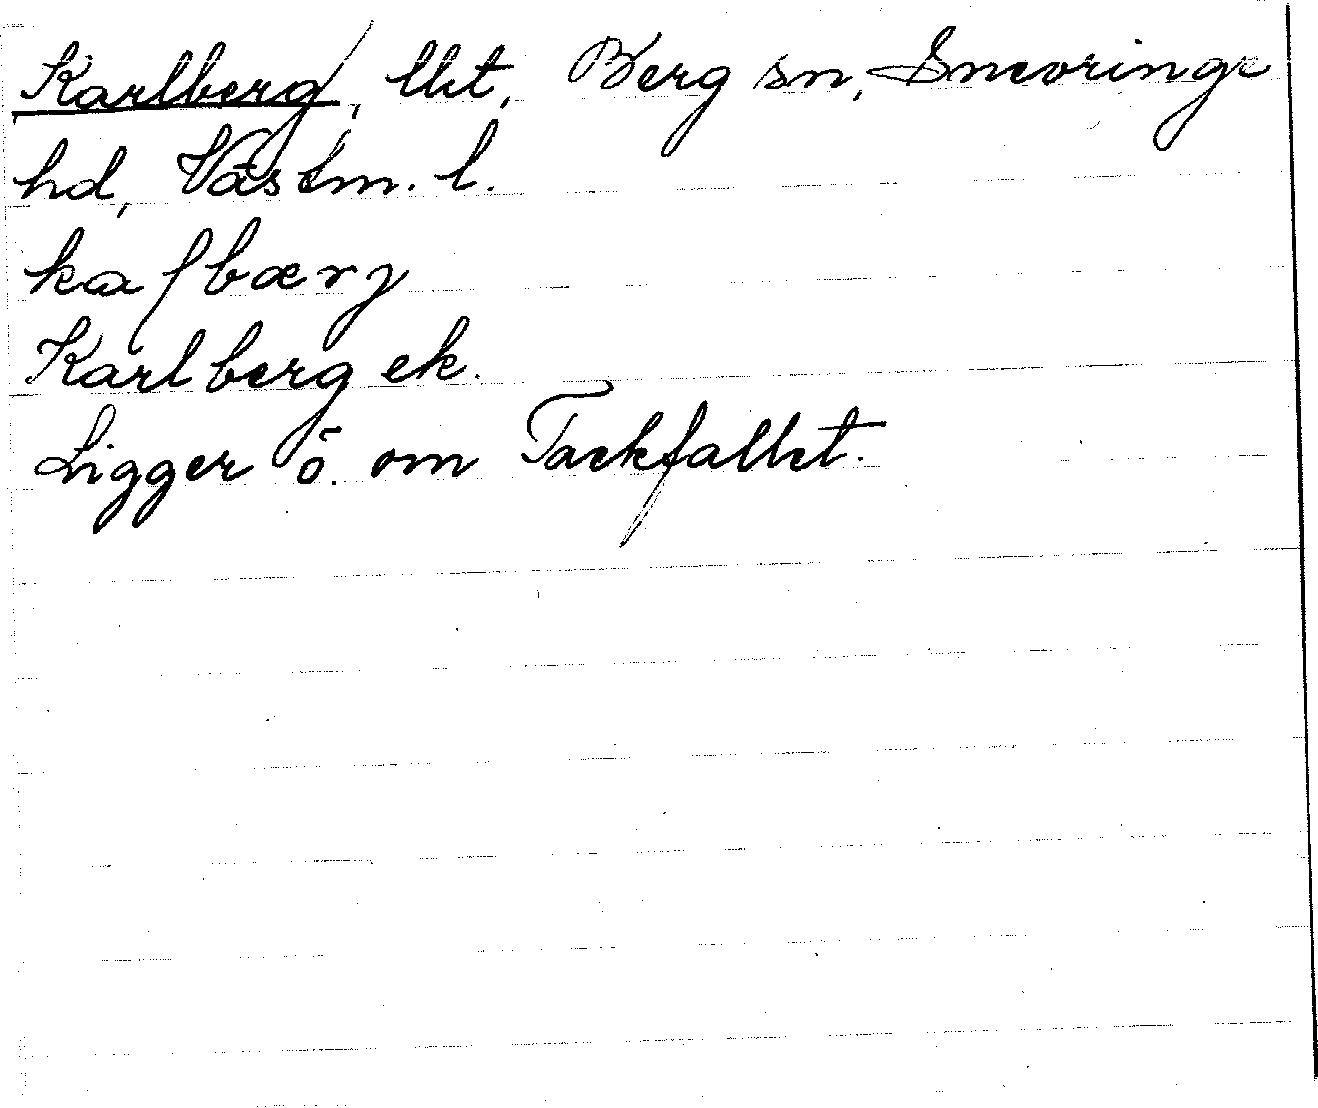 Karlberg, lht, Berg sn, Snevringe
hd, Västm. l.
kaſbærj
Karlberg ek.
Ligger ö. om Tackfallet.